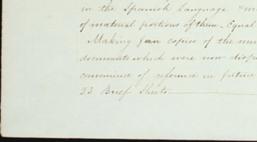 in the Spanish Language
of material portions of them. Equal
Making fair copies of the
documents which were now
convenience of reference in future
33 Brief Sheets